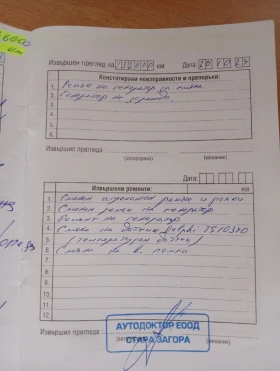 6000
км
Извършен преглед на 212000 км Дата: 20 10 23
Констатирани неизправности и препоръка:
1. Ремък на генератор за смяна
2. Генератор не зарежда.
3.
4.
5.
6.
Извършил прегледа
(фамилия)
Дата:
Извършени ремонти: км
1. Смяна ангренажен ремък и ролки
2. Смяна ремък на генератор
3. Ремонт на генератор
4. Смяна на датчик Delphi TS10340
5. (температурен датчик)
6. Смяна на в. помпа
7.
8.
9.
10.
11.
12.
Извършил прегледа
АУТОДОКТОР ЕООД
СТАРА ЗАГОРА